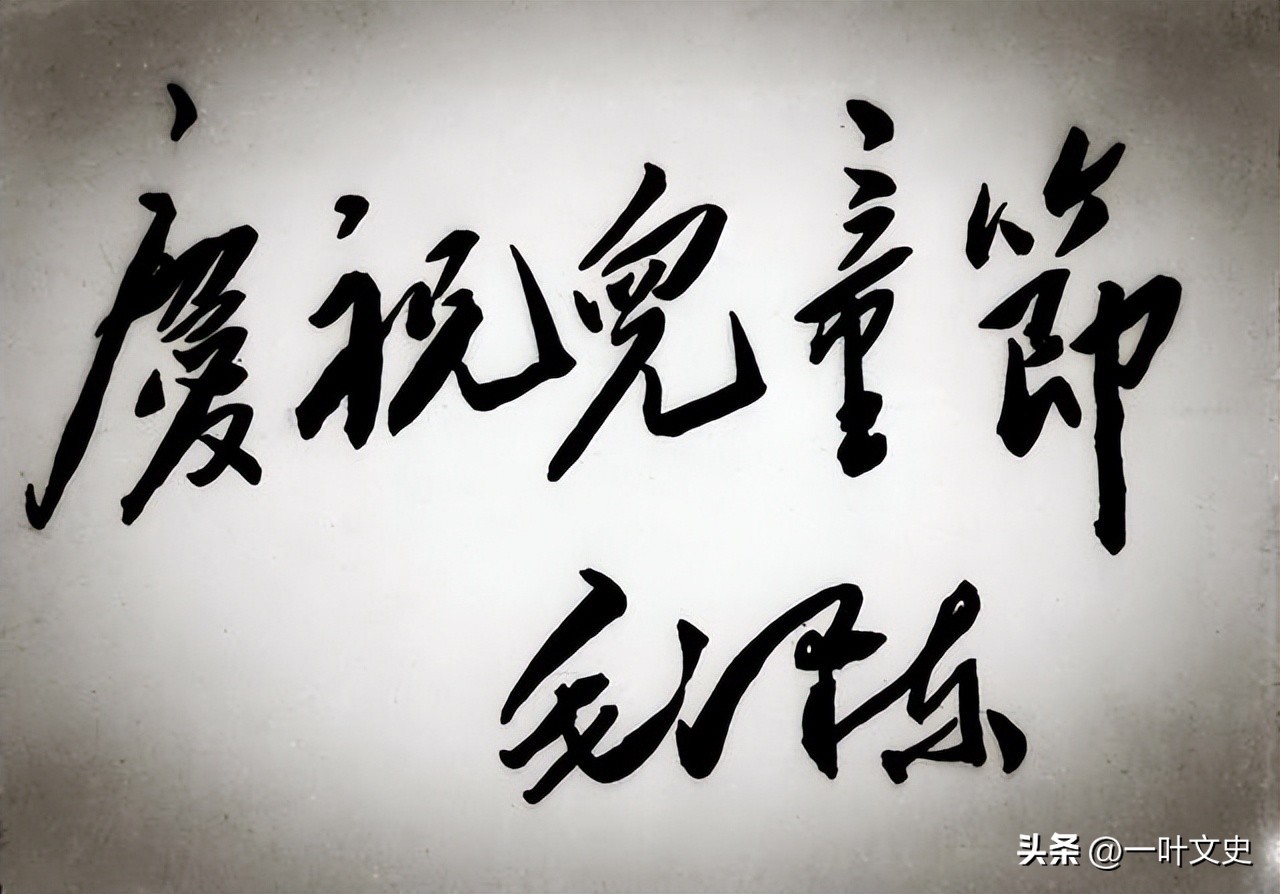 慶祝兒童節
毛泽东
头条 @一叶文史